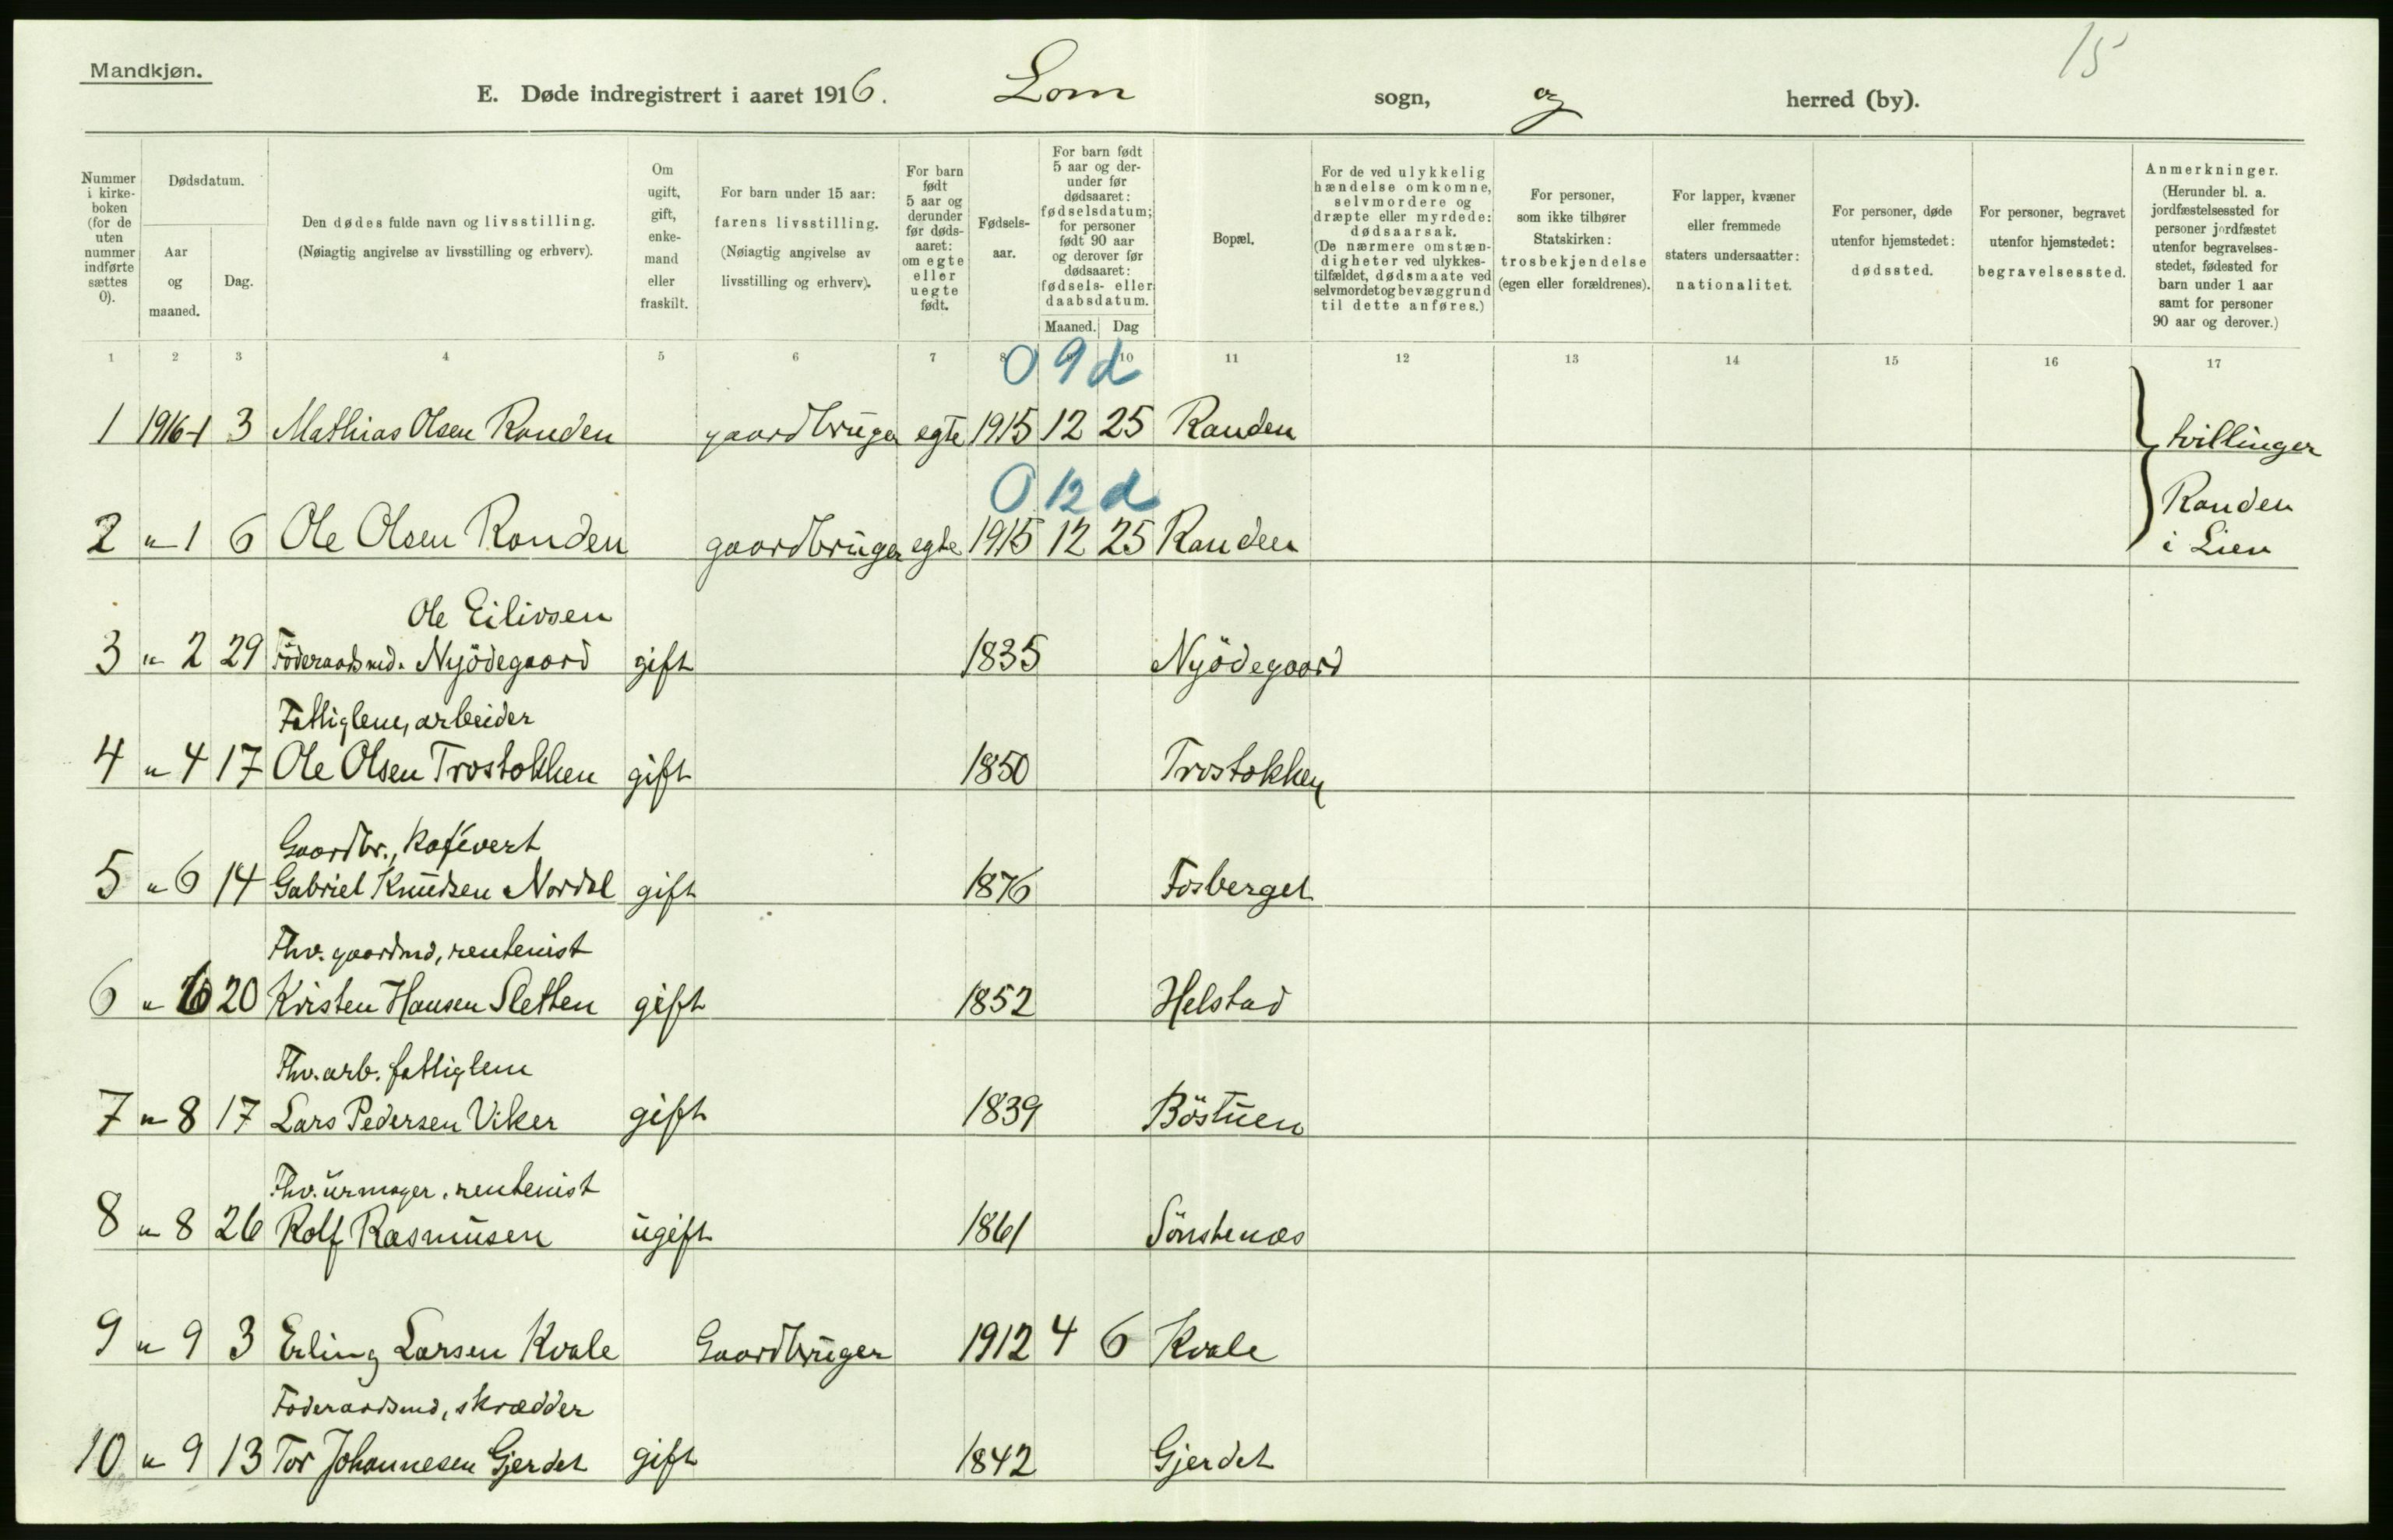 15
Mandkjøn.
E. Døde indregistrert i aaret 1916. Lom sogn, og herred (by).
Nummer i kirke-boken (for de uten nummer indførte sættes 0).
Dødsdatum.
Aar og maaned.
Dag.
Den dødes fulde navn og livsstilling.
(Nøiagtig angivelse av livsstilling og erhverv).
Om ugift, gift, enke-mand eller fraskilt.
For barn under 15 aar: farens livsstilling.
(Nøiagtig angivelse av livsstilling og erhverv).
For barn født 5 aar og derunder før døds-aaret: om egte eller uegte født.
Fødsels-aar.
For barn født 5 aar og der-under før dødsaaret: fødselsdatum; for personer født 90 aar og derover før dødsaaret: fødsels- eller daabsdatum.
Maaned. Dag
Bopæl.
For de ved ulykkelig hændelse omkomne, selvmordere og dræpte eller myrdede: dødsaarsak. (De nærmere omstæn-digheter ved ulykkes-tilfældet, dødsmaate ved selvmordet og bevæggrund til dette anføres.)
For personer, som ikke tilhører Statskirken: trosbekjendelse (egen eller forældrenes).
For lapper, kvæner eller fremmede staters undersaatter: nationalitet.
For personer, døde utenfor hjemstedet: dødssted.
For personer, begravet utenfor hjemstedet: begravelsessted.
Anmerkninger.
(Herunder bl. a. jordfæstelsessted for personer jordfæstet utenfor begravelses-stedet, fødested for barn under 1 aar samt for personer 90 aar og derover.)
1 2 3 4 5 6 7 8 9 10 11 12 13 14 15 16 17
0 9 d
1 1916-1 3 Mathias Olsen Randen gaardbruger egte 1915 12 25 Randen tvillinger
0 12 d
2 " 1 6 Ole Olsen Randen gaardbruger egte 1915 12 25 Randen Randen
i Lien
Ole Eilivsen
3 " 2 29 Föderaadsmd. Nyödegaard gift 1835 Nyödegaard
Fattiglem, arbeider
4 " 4 17 Ole Olsen Trostokken gift 1850 Trostokken
Gaardbr., kafévert
5 " 6 14 Gabriel Knudsen Nordal gift 1876 Fosberget
Fhv. gaardmd, rentenist
6 " 6 20 Kristen Hansen Sletten gift 1852 Helstad
Fhv. arb. fattiglem
7 " 8 17 Lars Pedersen Viker gift 1839 Böstuen
Fhv. urmager, rentenist
8 " 8 26 Rolf Rasmusen ugift 1861 Sönstenæs
9 " 9 3 Erling Larsen Kvale Gaardbruger 1912 4 6 Kvale
Föderaadsmd, skrædder
10 " 9 13 Tor Johannesen Gjerdet gift 1842 Gjerdet